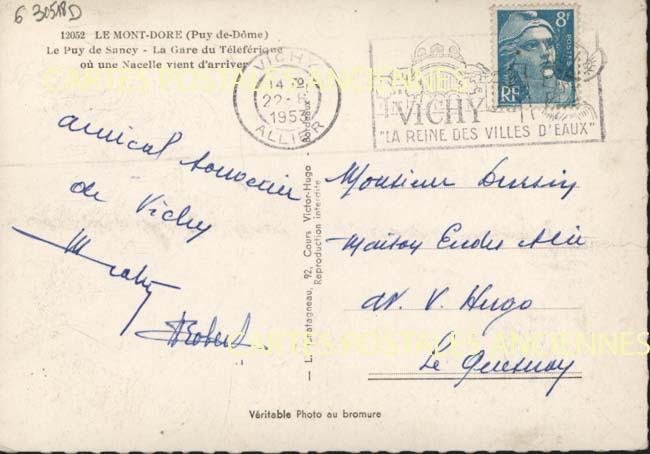 6 30518D
12052 LE MONT-DORE (Puy de-Dôme)
Le Puy de Sancy - La Gare du Téléférique
où une Nacelle vient d'arriver
CARTES POSTALES ANCIENNES
VICHY
14 H
22 -
1953
ALLIER
VICHY
"LA REINE DES VILLES D'EAUX"
8F
POSTES
RF
amical souvenir
de Vichy
Robert
92, Cours Victor-Hugo - Bordeaux
Reproduction interdite
Monsieur
Maison
av. V. Hugo
Le Quesnoy
CARTES POSTALES ANCIENNES
Véritable Photo au bromure